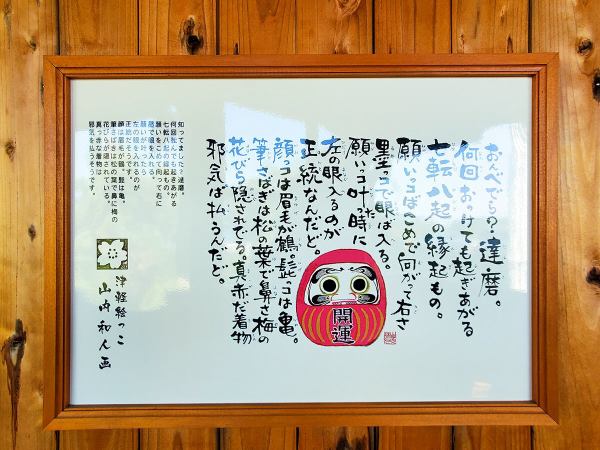 おべでらの?達磨。
何回おけても起ぎあがる
七転八起の縁起もの。
願いっコばこめで向がって右さ
墨っコで眼ば入る。
願いっコ叶った時に
左の眼入るのが
正統なんだど。
顔っコは眉毛が鶴。髭っコは亀。
筆さばぎは松の葉で鼻さ梅の
花びら隠されでる。真赤だ着物
邪気ば払うんだど。
開運
知ってました?達磨。
何回転んでも起きあがる
七転八起の縁起もの。
願いをこめて向って右に
墨で眼を入れる。
願いが叶ったら
左の眼を入れるのが
正統だそうです。
顔は眉毛が鶴。髭は亀。
筆さばきは松の葉で鼻に梅の
花びらが隠されている。
真っ赤な着物は
邪気を払うそうです。
津軽絵っこ
山内和人画